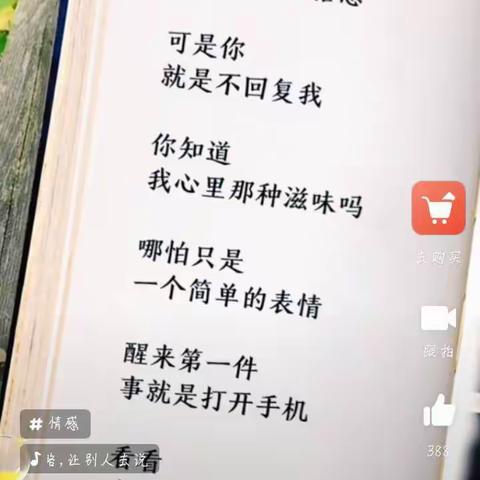 可是你
就是不回复我
你知道
我心里那种滋味吗
哪怕只是
一个简单的表情
醒来第一件
事就是打开手机
看看
去购买
跟拍
388
# 情感
,让别人去说